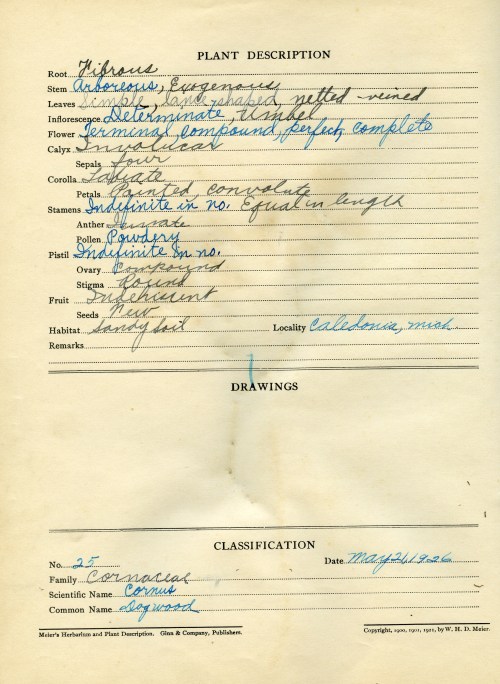 PLANT DESCRIPTION
Root Fibrous
Stem Arboreous, Exogenous
Leaves Simple, lance-shaped, netted-veined
Inflorescence Determinate, Umbel
Flower Terminal, compound, perfect, complete
Calyx Involucar
Sepals four
Corolla Labiate
Petals Pointed, convolute
Stamens Indefinite in no. Equal in length
Anther Innate
Pollen Powdery
Pistil Indefinite in no.
Ovary Compound
Stigma Round
Fruit Indehiscent
Seeds Few
Habitat Sandy soil Locality Caledonia, Mich.
Remarks
DRAWINGS
CLASSIFICATION
No. 25 Date May 21, 1926
Family Cornaceae
Scientific Name Cornus
Common Name Dogwood
Meier's Herbarium and Plant Description. Ginn & Company, Publishers. Copyright, 1900, 1901, 1921, by W. H. D. Meier